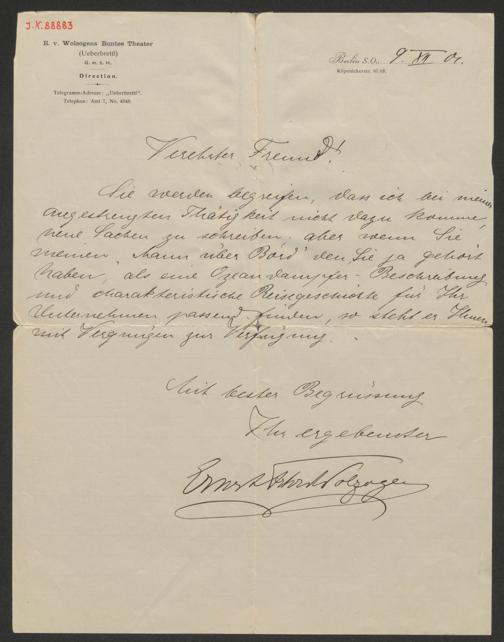 J.N. 88883
E. v. Wolzogens Buntes Theater
(Ueberbrettl)
G. m. b. H.
Direction.
Telegramm-Adresse: „Ueberbrettl“.
Telephon: Amt 7, No. 4840.
Berlin S.O., 9. XII 01.
Köpenickerstr.
Verehrter Freund!
Sie werden begreifen, dass ich bei meiner
angestrengten Thätigkeit nicht dazu komme,
neue Sachen zu schreiben, aber wenn Sie
meinen „Mann über Bord“ den Sie ja gehört
haben, als eine Ozeandampfer-Beschreibung
und charakteristische Reisegeschichte für Ihr
Unternehmen passend finden, so steht er Ihnen
mit Vergnügen zur Verfügung.
Mit bester Begrüssung
Ihr ergebenster
Ernst Wolzogen